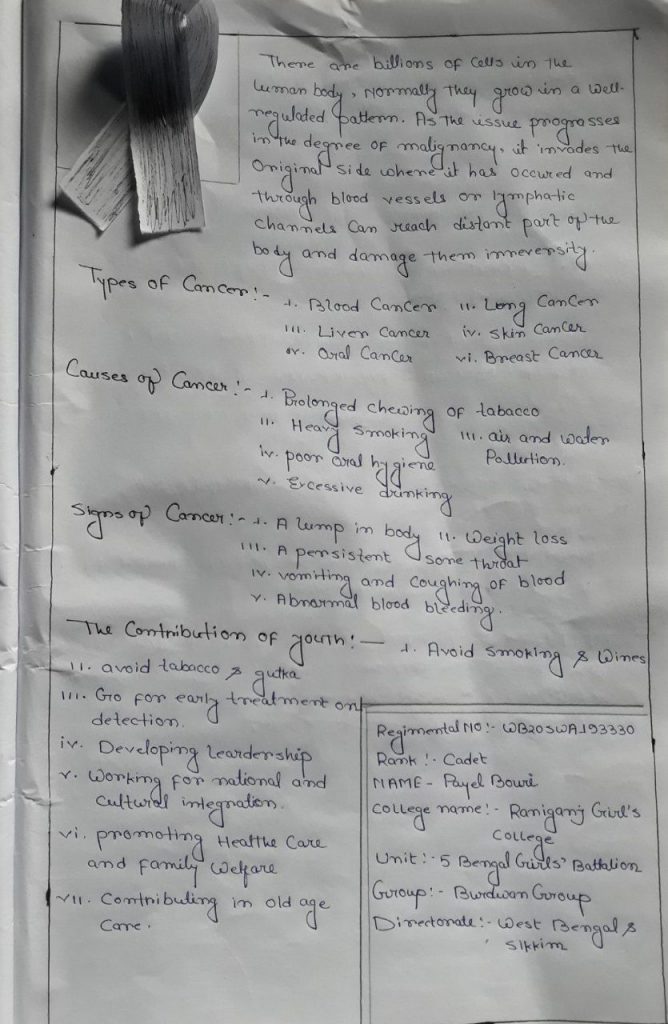 There are billions of cells in the
human body, Normally they grow in a well-
regulated pattern. As the issue prograsses
in the degree of malignancy, it invades the
Original side where it has occured and
through blood vessels or lymphatic
channels Can reach distant part of the
body and damage them irreversity.
Types of Cancer:- i. Blood Cancer ii. Long Cancer
iii. Liver Cancer iv. Skin Cancer
v. Oral Cancer vi. Breast Cancer
Causes of Cancer:- i. Prolonged chewing of tabacco
ii. Heavy smoking iii. air and water
iv. poor oral hygiene Pollution.
v. Excessive drinking
Signs of Cancer:- i. A lump in body ii. Weight loss
iii. A persistent sore throat
iv. vomiting and coughing of blood
v. Abnormal blood bleeding.
The Contribution of youth:— i. Avoid smoking & Wines
ii. avoid tabacco & gutka
iii. Go for early treatment on
detection.
iv. Developing leardership
v. Working for national and
cultural integration.
vi. promoting Healthe Care
and family Welfare
vii. Contributing in old age
Care.
Regimental NO:- WB20SWA193330
Rank:- Cadet
NAME - Payel Bouri
college name:- Raniganj Girl's
College
Unit:- 5 Bengal Girls' Battalion
Group:- Burdwan Group
Directorate:- West Bengal &
Sikkim